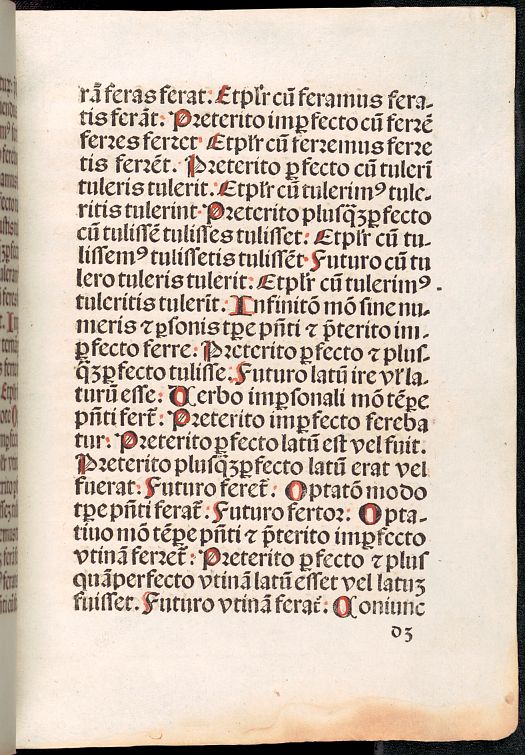 rā feras ferat. Etplr̄ cū feramus fera-
tis ferāt: Preterito imꝑfecto cū ferrē
ferres ferret Etplr̄ cū ferremus ferre
tis ferrēt. Preterito ꝑfecto cū tulerī
tuleris tulerit. Etplr̄ cū tulerimꝰ tule-
ritis tulerint Preterito plusq̄ꝫꝑfecto
cū tulissē tulisses tulisset: Etplr̄ cū tu-
lissemꝰ tulissetis tulissēt Futuro cū tu
lero tuleris tulerit. Etplr̄ cū tulerimꝰ
tulcritis tulerīt. Infinitō mō sine nu-
meris ⁊ ꝑsonis tꝑe pn̄ti ⁊ p̄terito im-
ꝑfecto ferre. Preterito ꝑfecto ⁊ plus-
q̄ꝫꝑfecto tulisse. Futuro latū ire vl̄ la-
turū esse: Verbo imꝑsonali mō tēꝑe
pn̄ti fert̄: Preterito imꝑfecto fereba
tur: Preterito ꝑfecto latū est vel fuit.
Preterito plusq̄ꝫꝑfecto latū erat vel
fuerat: Futuro feret̄. Optatō modo
tꝑe pn̄ti ferat̄: Futuro fertor: Opta-
tiuo mō tēꝑe pn̄ti ⁊ p̄terito imꝑfecto
vtinā ferret̄: Preterito ꝑfecto ⁊ plus
quāperfecto vtinā latū esset vel latuꝫ
fuisset. Futuro vtinā ferat̄: Coniunc
d3